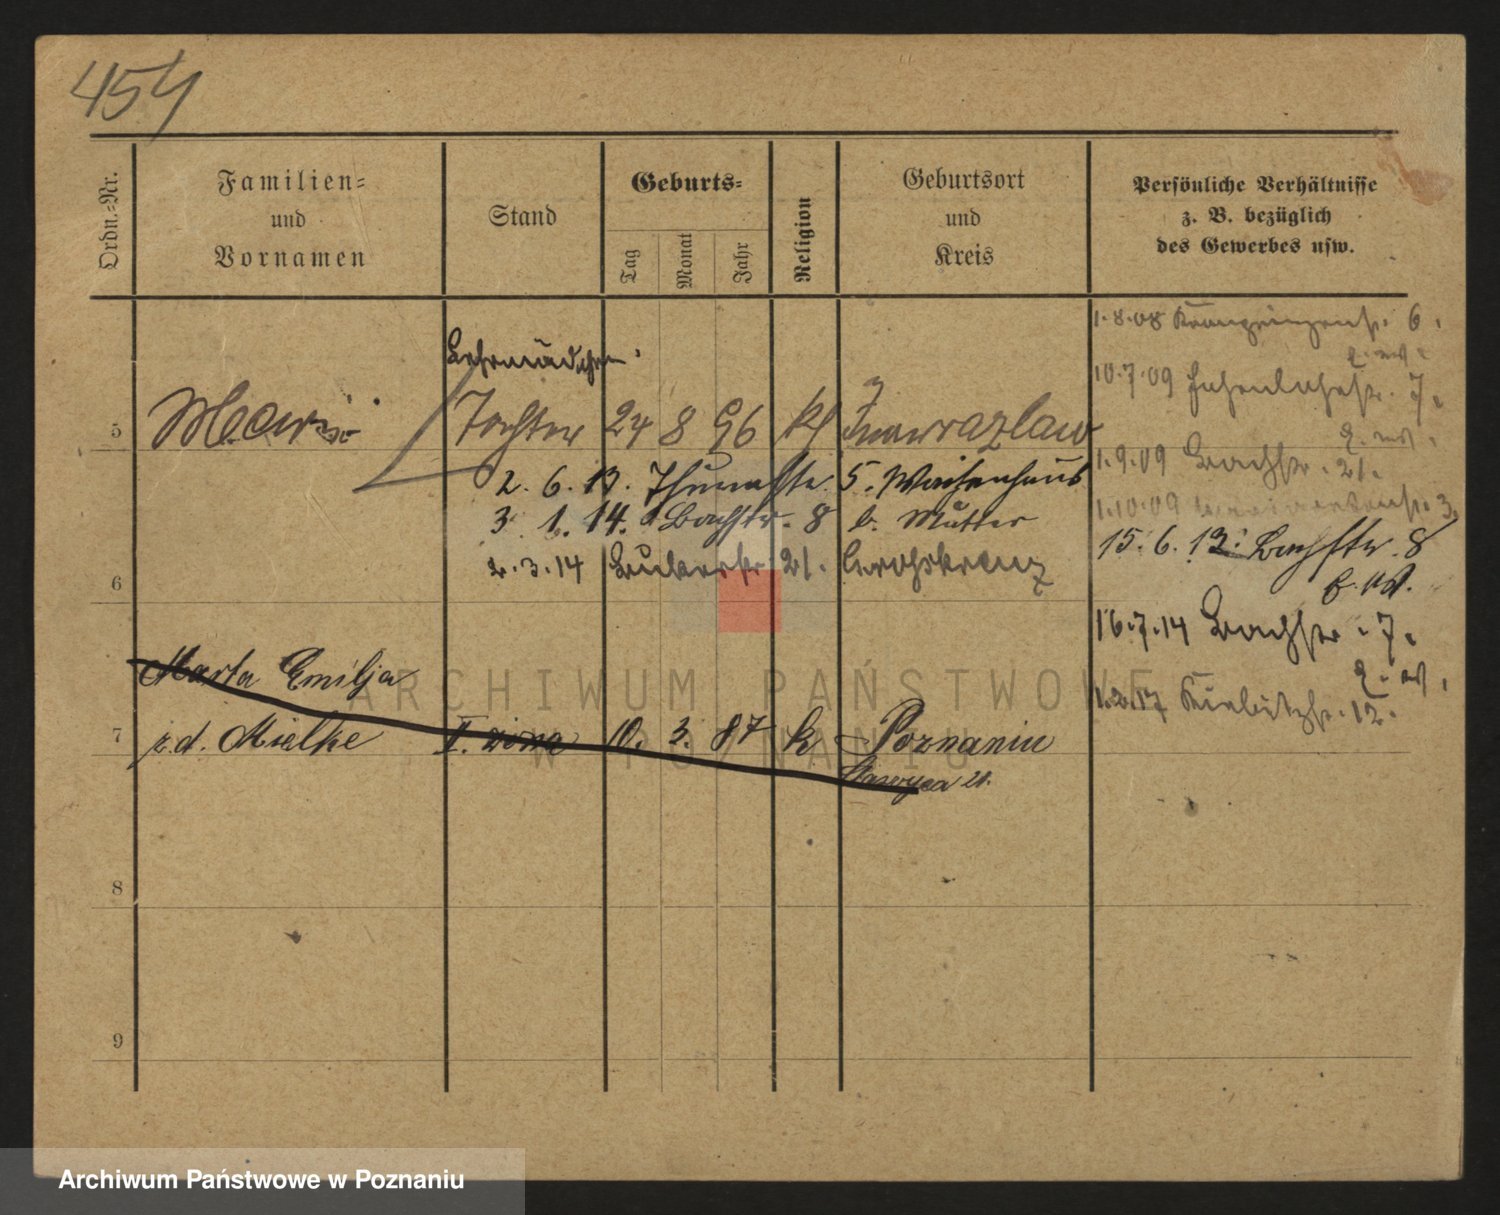 454
Ordn.-Nr.
Familien-
und
Vornamen
Stand
Geburts-
Tag
Monat
Jahr
Religion
Geburtsort
und
Kreis
Persönliche Verhältnisse
z. B. bezüglich
des Gewerbes usw.
1.8.08 6.
10.7.09 7.
1.9.09 Bachstr. 21.
1.10.09 3.
15.6.13. Bachstr. 8
16.7.14 Bachstr. 7.
1.2.17 Kiebitzstr. 12.
Lehrmädchen.
5 Tochter 24 8 96 kt Inowrazlaw
2. 6. 13. Thurmstr. 5. Waisenhaus
3. 1. 14. Bachstr. 8 b. Mutter
6 2.3.14 21.
Marta Emilja
7 z.d. Mielke II. żona 10. 3. 87 k Poznaniu
21.
8
9
ARCHIWUM PAŃSTWOWE
W POZNANIU
Archiwum Państwowe w Poznaniu